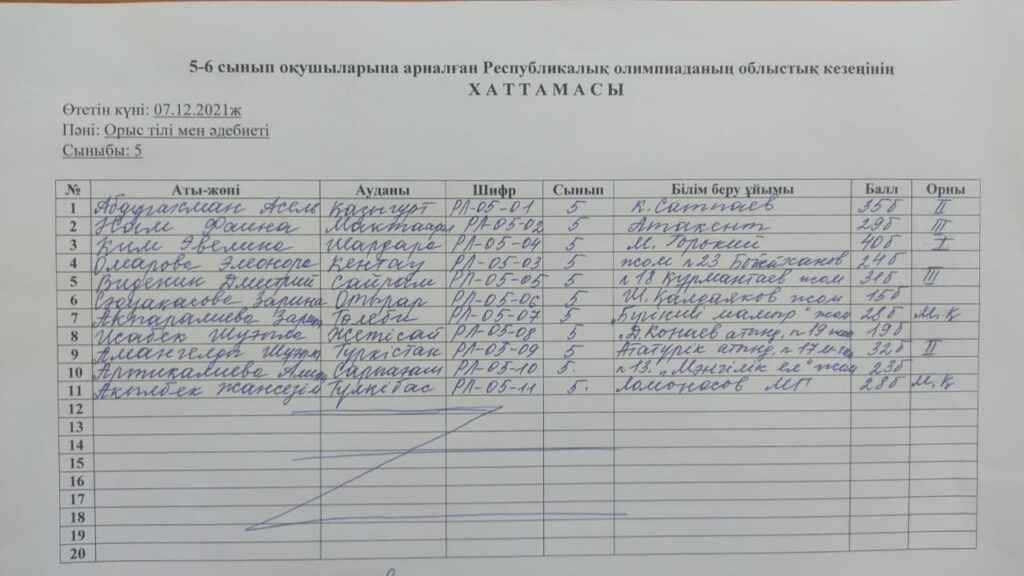 5-6 сынып оқушыларына арналған Республикалық олимпиаданың облыстық кезеңінің
ХАТТАМАСЫ
Өтетін күні: 07.12.2021ж
Пәні: Орыс тілі мен әдебиеті
Сыныбы: 5
№ Аты-жөні Ауданы Шифр Сынып Білім беру ұйымы Балл Орны
1 Абдугахман Асель Қазығұрт РЛ-05-01 5 К.Сатпаев 35б II
2 Фаина РЛ-05-02 5 Атакент 29б III
3 Ким Эвелина Шардара РЛ-05-04 5 М. Горький 40б I
4 Омарова Элеонора Кентау РЛ-05-03 5 жом n23 24б
5 Дмитрий Сайрам РЛ-05-05 5 n18 Құрмантаев жом 31б III
6 Зарина Отырар РЛ-05-06 5 Ш. Қалдаяқов жом 15б
7 Төлеби РЛ-05-07 5 28б М.Қ
8 Исабек Жетісай РЛ-05-08 5 „Д.Конаев атынд. n19 жом 19б
9 Амангелди Түркістан РЛ-05-09 5 Ататүрік атынд. n17 32б II
10 РЛ-05-10 5. n13. „Мәңгілік ел" жом 23б
11 Ақылбек Жансезім Түлкібас РЛ-05-11 5. Ломоносов МГ 28б М.Қ
12
13
14
15
16
17
18
19
20